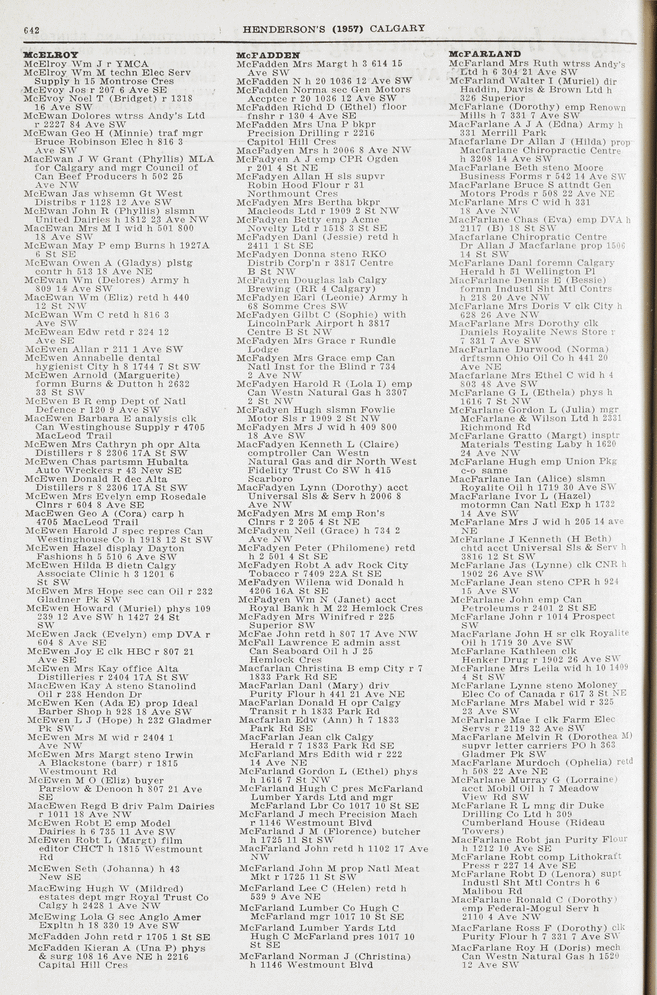 642
HENDERSON'S (1957) CALGARY
McELROY
McElroy Wm J r YMCA
McElroy Wm M techn Elec Serv
Supply h 15 Montrose Cres
McEvoy Jos r 207 6 Ave SE
McEvoy Noel T (Bridget) r 1318
16 Ave SW
McEwan Dolores wtrss Andy's Ltd
r 2227 84 Ave SW
McEwan Geo H (Minnie) traf mgr
Bruce Robinson Elec h 816 3
Ave SW
MacEwan J W Grant (Phyllis) MLA
for Calgary and mgr Council of
Can Beef Producers h 502 25
Ave NW
McEwan Jas whsemn Gt West
Distribs r 1128 12 Ave SW
McEwan John R (Phyllis) slsmn
United Dairies h 1812 23 Ave NW
MacEwan Mrs M I wid h 501 800
18 Ave SW
McEwan May P emp Burns h 1927A
6 St SE
McEwan Owen A (Gladys) plstg
contr h 513 18 Ave NE
McEwan Wm (Delores) Army h
809 14 Ave SW
MacEwan Wm (Eliz) retd h 440
12 St NW
McEwan Wm C retd h 816 3
Ave SW
McEwean Edw retd r 324 12
Ave SE
McEwen Allan r 211 1 Ave SW
McEwen Annabelle dental
hygienist City h 8 1744 7 St SW
McEwen Arnold (Marguerite)
formn Burns & Dutton h 2632
33 St SW
McEwen B R emp Dept of Natl
Defence r 120 9 Ave SW
MacEwen Barbara E analysis clk
Can Westinghouse Supply r 4705
MacLeod Trail
McEwen Mrs Cathryn ph opr Alta
Distillers r 8 2306 17A St SW
McEwen Chas partsmn Hubalta
Auto Wreckers r 43 New SE
McEwen Donald R dec Alta
Distillers r 8 2306 17A St SW
McEwen Mrs Evelyn emp Rosedale
Clnrs r 604 8 Ave SE
MacEwen Geo A (Cora) carp h
4705 MacLeod Trail
McEwen Harold J spec repres Can
Westinghouse Co h 1918 12 St SW
McEwen Hazel display Dayton
Fashions h 5 510 6 Ave SW
McEwen Hilda B dietn Calgy
Associate Clinic h 3 1201 6
St SW
McEwen Mrs Hope sec can Oil r 232
Gladmer Pk SW
McEwen Howard (Muriel) phys 109
239 12 Ave SW h 1427 24 St
SW
McEwen Jack (Evelyn) emp DVA r
604 8 Ave SE
McEwen Joy E clk HBC r 807 21
Ave SE
McEwen Mrs Kay office Alta
Distilleries r 2404 17A St SW
MacEwen Kay A steno Stanolind
Oil r 238 Hendon Dr
McEwen Ken (Ada E) prop Ideal
Barber Shop h 928 18 Ave SW
McEwen L J (Hope) h 232 Gladmer
Pk SW
McEwen Mrs M wid r 2404 1
Ave NW
McEwen Mrs Margt steno Irwin
A Blackstone (barr) r 1815
Westmount Rd
McEwen M O (Eliz) buyer
Parslow & Denoon h 807 21 Ave
SE
MacEwen Regd B driv Palm Dairies
r 1011 18 Ave NW
McEwen Robt E emp Model
Dairies h 6 735 11 Ave SW
McEwen Robt L (Margt) film
editor CHCT h 1815 Westmount
Rd
McEwen Seth (Johanna) h 43
New SE
MacEwing Hugh W (Mildred)
estates dept mgr Royal Trust Co
Calgy h 2428 1 Ave NW
McEwing Lola G sec Anglo Amer
Expltn h 18 330 19 Ave SW
McFadden John retd r 1705 1 St SE
McFadden Kieran A (Una P) phys
& surg 108 16 Ave NE h 2216
Capitol Hill Cres
McFADDEN
McFadden Mrs Margt h 3 614 15
Ave SW
McFadden N h 20 1036 12 Ave SW
McFadden Norma sec Gen Motors
Accptce r 20 1036 12 Ave SW
McFadden Richd D (Ethel) floor
fnshr r 130 4 Ave SE
McFadden Mrs Una P bkpr
Precision Drilling r 2216
Capitol Hill Cres
McFadyen Mrs h 2006 8 Ave NW
McFadyen A J emp CPR Ogden
r 201 4 St NE
McFadyen Allan H sls supvr
Robin Hood Flour r 31
Northmount Cres
McFadyen Mrs Bertha bkpr
Macleods Ltd r 1909 2 St NW
McFadyen Betty emp Acme
Novelty Ltd r 1518 3 St SE
McFadyen Danl (Jessie) retd h
2411 1 St SE
McFadyen Donna steno RKO
Distrib Corp'n r 3817 Centre
B St NW
McFadyen Douglas lab Calgy
Brewing (RR 4 Calgary)
McFadyen Earl (Leonie) Army h
68 Somme Cres SW
McFadyen Gilbt C (Sophie) with
LincolnPark Airport h 3817
Centre B St NW
McFadyen Mrs Grace r Rundle
Lodge
McFadyen Mrs Grace emp Can
Natl Inst for the Blind r 734
2 Ave NW
McFadyen Harold R (Lola I) emp
Can Westn Natural Gas h 3307
2 St NW
McFadyen Hugh slsmn Fowlie
Motor Sls r 1909 2 St NW
McFadyen Mrs J wid h 409 800
18 Ave SW
MacFadyen Kenneth L (Claire)
comptroller Can Westn
Natural Gas and dir North West
Fidelity Trust Co SW h 415
Scarboro
MacFadyen Lynn (Dorothy) acct
Universal Sls & Serv h 2006 8
Ave NW
McFadyen Mrs M emp Ron's
Clnrs r 2 205 4 St NE
McFadyen Neil (Grace) h 734 2
Ave NW
McFadyen Peter (Philomene) retd
h 2 501 4 St SE
McFadyen Robt A adv Rock City
Tobacco r 7409 22A St SE
McFadyen Wilena wid Donald h
4206 16A St SE
McFadyen Wm N (Janet) acct
Royal Bank h M 22 Hemlock Cres
McFadyen Mrs Winifred r 225
Superior SW
McFae John retd h 807 17 Ave NW
McFall Lawrence E admin asst
Can Seaboard Oil h J 25
Hemlock Cres
Macfarlan Christina B emp City r 7
1833 Park Rd SE
MacFarlan Danl (Mary) driv
Purity Flour h 441 21 Ave NE
MacFarlan Donald H opr Calgy
Transit r h 1833 Park Rd SE
Macfarlan Edw (Ann) h 7 1833
Park Rd SE
MacFarlan Jean clk Calgy
Herald r 7 1833 Park Rd SE
McFarland Mrs Edith wid r 222
14 Ave NE
McFarland Gordon L (Ethel) phys
h 1616 7 St NW
McFarland Hugh C pres McFarland
Lumber Yards Ltd and mgr
McFarland Lbr Co 1017 10 St SE
McFarland J mech Precision Mach
r 1146 Westmount Blvd
McFarland J M (Florence) butcher
r 1725 11 St SW
McFarland John retd h 1102 17 Ave
NW
McFarland John M prop Natl Meat
Mkt r 1725 11 St SW
McFarland Lee C (Helen) retd h
539 9 Ave NE
McFarland Lumber Co Hugh C
McFarland mgr 1017 10 St SE
McFarland Lumber Yards Ltd
Hugh C McFarland pres 1017 10
St SE
McFarland Norman J (Christina)
h 1146 Westmount Blvd
McFARLAND
McFarland Mrs Ruth wtrss Andy's
Ltd h 6 304 21 Ave SW
McFarland Walter I (Muriel) dir
Haddin, Davis & Brown Ltd h
326 Superior
McFarlane (Dorothy) emp Renown
Mills h 7 331 7 Ave SW
MacFarlane A J A (Edna) Army h
331 Merrill Park
Macfarlane Dr Allan J (Hilda) prop
Macfarlane Chiropractic Centre
h 3208 14 Ave SW
MacFarlane Beth steno Moore
Business Forms r 542 14 Ave SW
MacFarlane Bruce S attndt Gen
Motors Prods r 508 22 Ave NE
McFarlane Mrs C wid h 331
18 Ave NW
MacFarlane Chas (Eva) emp DVA h
2117 (B) 18 St SW
Macfarlane Chiropratic Centre
Dr Allan J Macfarlane prop 1506
14 St SW
MacFarlane Danl foremn Calgary
Herald h 51 Wellington Pl
MacFarlane Dennis E (Bessie)
formn Industl Sht Mtl Contrs
h 218 20 Ave NW
McFarlane Mrs Doris V clk City h
628 26 Ave NW
MacFarlane Mrs Dorothy clk
Daniels Royalite News Store r
7 331 7 Ave SW
Macfarlane Durwood (Norma)
drftsmn Ohio Oil Co h 441 20
Ave NE
Macfarlane Mrs Ethel C wid h 4
803 48 Ave SW
McFarlane G L (Ethela) phys h
1616 7 St NW
McFarlane Gordon L (Julia) mgr
McFarlane & Wilson Ltd h 2331
Richmond Rd
McFarlane Gratto (Margt) insptr
Materials Testing Laby h 1620
24 Ave NW
MacFarlane Hugh emp Union Pkg
c-o same
MacFarlane Ian (Alice) slsmn
Royalite Oil h 1719 30 Ave SW
MacFarlane Ivor L (Hazel)
motormn Can Natl Exp h 1732
14 Ave SW
McFarlane Mrs J wid h 205 14 ave
NE
McFarlane J Kenneth (H Beth)
chtd acct Universal Sls & Serv h
3816 12 St SW
McFarlane Jas (Lynne) clk CNR h
1902 26 Ave SW
McFarlane Jean steno CPR h 924
15 Ave SW
McFarlane John emp Can
Petroleums r 2401 2 St SE
McFarlane John r 1014 Prospect
SW
MacFarlane John H sr clk Royalite
Oil h 1719 30 Ave SW
McFarlane Kathleen clk
Henker Drug r 1902 26 Ave SW
McFarlane Mrs Leila wid h 10 1409
4 St SW
McFarlane Lynne steno Moloney
Elec Co of Canada r 617 3 St NE
McFarlane Mrs Mabel wid r 325
23 Ave SW
McFarlane Mae I clk Farm Elec
Servs r 2119 32 Ave SW
MacFarlane Melvin R (Dorothea M)
supvr letter carriers PO h 363
Gladmer Pk SW
MacFarlane Murdoch (Ophelia) retd
h 508 22 Ave NE
McFarlane Murray G (Lorraine)
acct Mobil Oil h 7 Meadow
View Rd SW
McFarlane R L mng dir Duke
Drilling Co Ltd h 309
Cumberland House (Rideau
Towers)
MacFarlane Robt jan Purity Flour
h 1212 10 Ave SE
McFarlane Robt comp Lithokraft
Press r 227 14 Ave SE
McFarlane Robt D (Lenora) supt
Industl Sht Mtl Contrs h 6
Malibou Rd
MacFarlane Ronald C (Dorothy)
emp Federal-Mogul Serv h
2110 4 Ave NW
MacFarlane Ross F (Dorothy) clk
Purity Flour h 7 331 7 Ave SW
McFarlane Roy H (Doris) mech
Can Westn Natural Gas h 1520
12 Ave SW